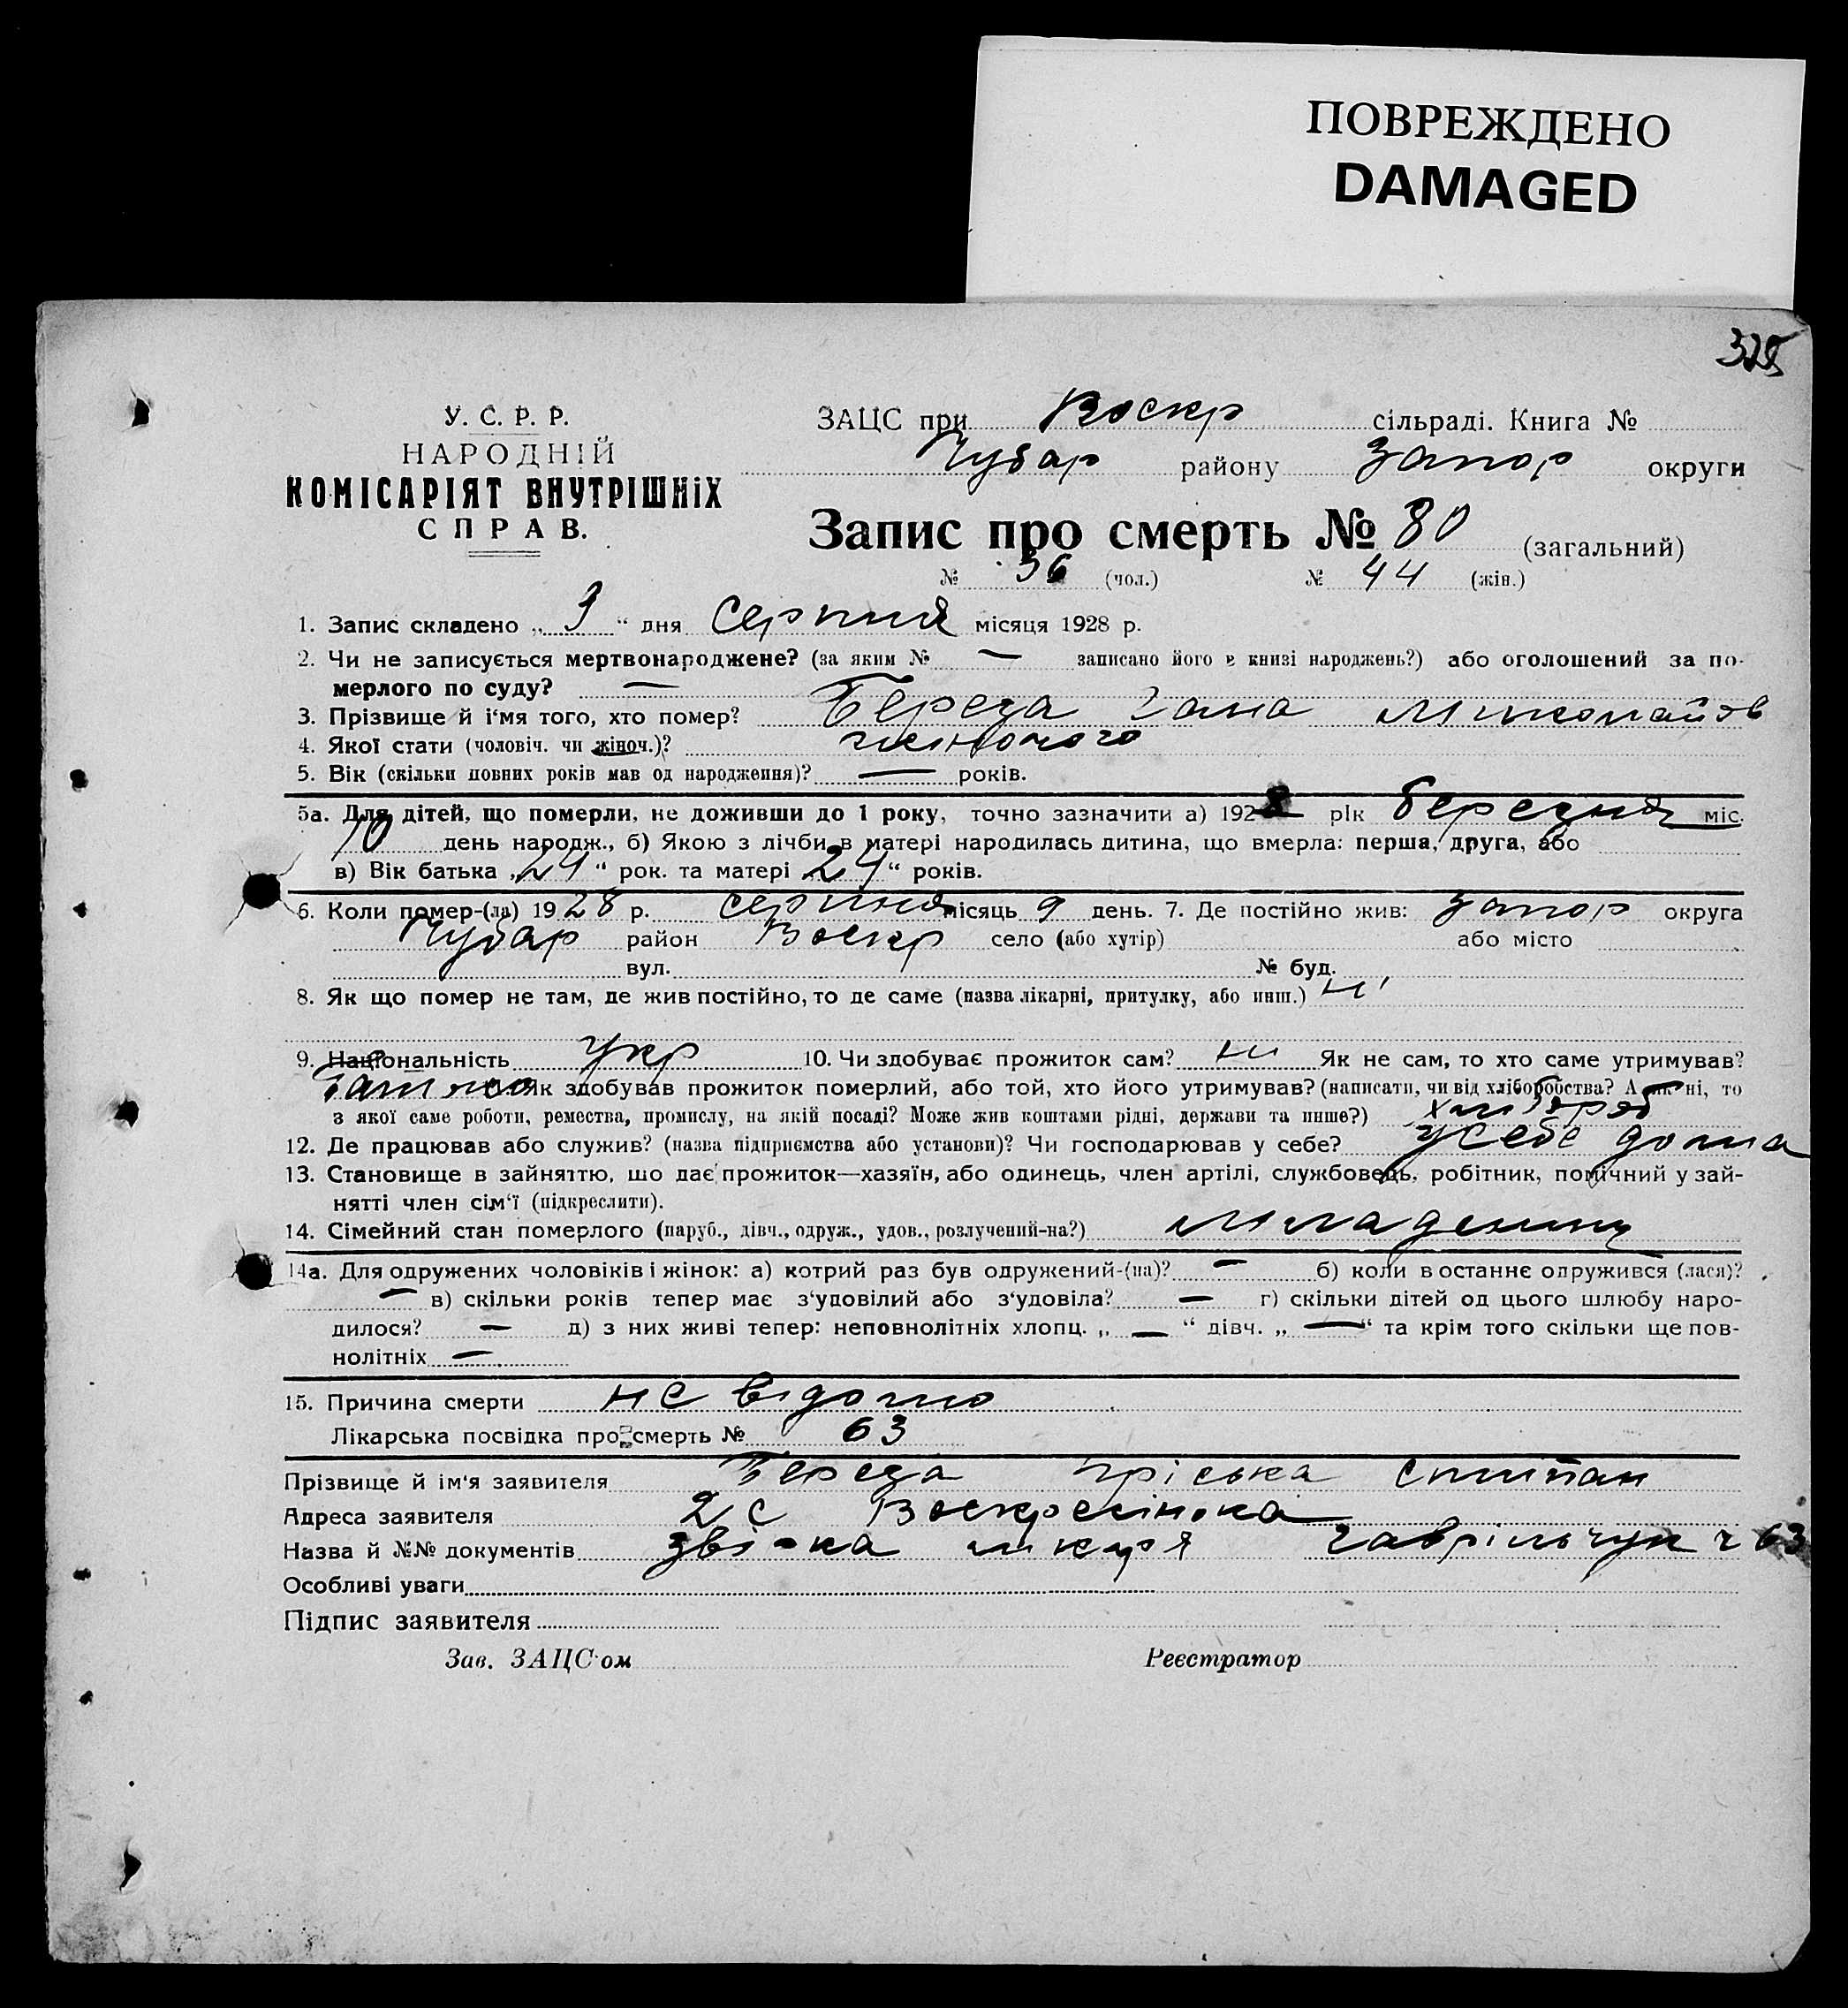 ПОВРЕЖДЕНО
DAMAGED
325
У. С. Р. Р.
НАРОДНІЙ
КОМІСАРІЯТ ВНУТРІШНІХ
СПРАВ.
ЗАЦС при Воскр сільраді. Книга №
Чубар району Запор округи
Запис про смерть № 80 (загальний)
№ 36 (чол.) № 44 (жін.)
1. Запис складено „ 9 “ дня Серпня місяця 1928 р.
2. Чи не записується мертвонароджене? (за яким № — записано його в книзі народжень?) або оголошений за по-
мерлого по суду? —
3. Прізвище й і'мя того, хто помер? Береза Гана Миколайов
4. Якої стати (чоловіч. чи жіноч.)? жіночого
5. Вік (скільки повних років мав од народження)? — років.
5а. Для дітей, що померли, не доживши до 1 року, точно зазначити а) 1928 рік березня міс.
10 день народж., б) Якою з лічби в матері народилась дитина, що вмерла: перша, друга, або
в) Вік батька „ 24 “ рок. та матері „ 24 “ років.
6. Коли помер-(ла) 1928 р. серпня місяць 9 день. 7. Де постійно жив: Запор округа
Чубар район Воскр село (або хутір) або місто
вул. № буд.
8. Як що помер не там, де жив постійно, то де саме (назва лікарні, притулку, або инш.) ні
9. Національність укр 10. Чи здобуває прожиток сам? ні Як не сам, то хто саме утримував?
Батько Як здобував прожиток померлий, або той, хто його утримував? (написати, чи від хліборобства? А як ні, то
з якої саме роботи, ремества, промислу, на якій посаді? Може жив коштами рідні, держави та инше?) хлібороб
12. Де працював або служив? (назва підприємства або установи)? Чи господарював у себе? у себе дома
13. Становище в зайняттю, що дає прожиток—хазяїн, або одинець, член артілі, службовець, робітник, помічний у зай-
нятті член сім'ї (підкреслити).
14. Сімейний стан померлого (паруб., дівч., одруж., удов., розлучений-на?) младенец
14а. Для одружених чоловіків і жінок: а) котрий раз був одружений-(на)? — б) коли востаннє одружився (лася)?
— в) скільки років тепер має з'удовілий або з'удовіла? — г) скільки дітей од цього шлюбу наро-
дилося? — д) з них живі тепер: неповнолітніх хлопц. „ — “ дівч. „ — “ та крім того скільки ще пов-
нолітніх —
15. Причина смерти не відомо
Лікарська посвідка про смерть № 63
Прізвище й ім'я заявителя Береза Пріська Стипан
Адреса заявителя с Воскресінока
Назва й №№ документів звістка лікаря Гаврільчук ч 63
Особливі уваги
Підпис заявителя
Зав. ЗАЦС'ом Реєстратор